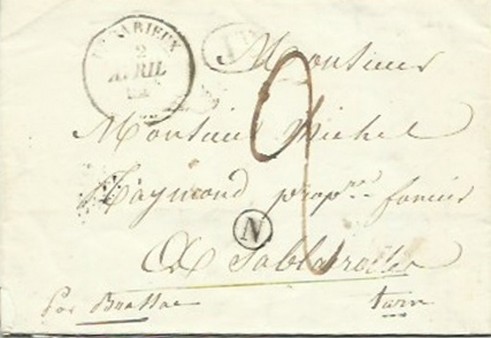 BEDARIEUX
2
AVRIL
Monsieur
2
Monsieur Michel
Raymond propre foncier
N
A Sablairolles
Par Brassac
tarn